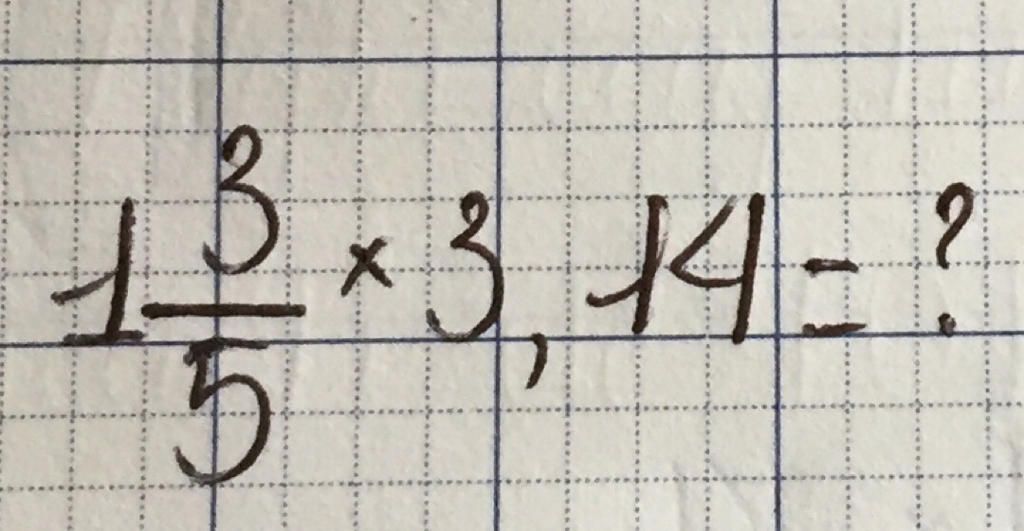 1 3/5 × 3,14 = ?